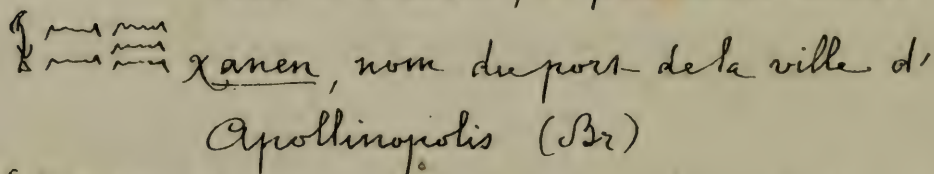 χanen, nom du port de la ville d'
Apollinopolis (Br)